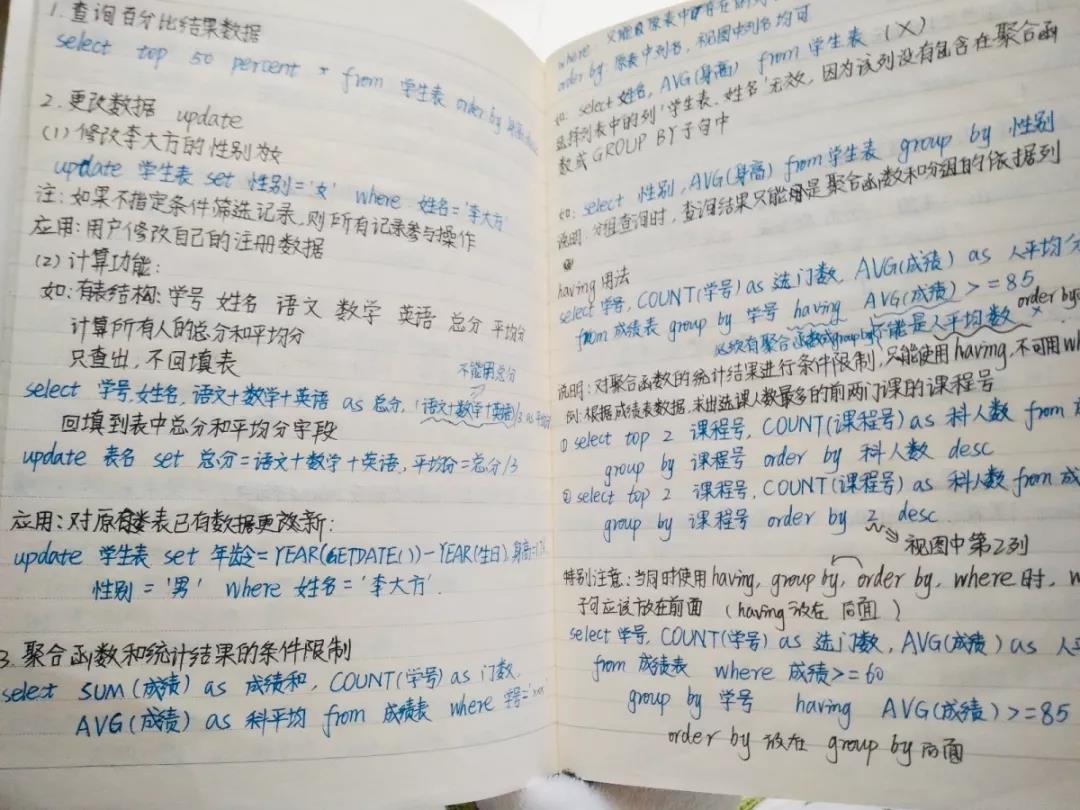 1.查询百分比结果数据
select top 50 percent * from 学生表 order by 身高
2.更改数据 update
(1)修改李大方的性别为女
update 学生表 set 性别='女' where 姓名='李大方'
注:如果不指定条件筛选记录,则所有记录参与操作
应用:用户修改自己的注册数据
(2)计算功能:
如:有表结构:学号 姓名 语文 数学 英语 总分 平均分
计算所有人的总分和平均分
只查出,不回填表
不能用总分
select 学号,姓名,语文+数学+英语 as 总分,(语文+数学+英语)/3 as 平均分
回填到表中总分和平均分字段
update 表名 set 总分=语文+数学+英语,平均分=总分/3
应用:对原有表已有数据更新:
update 学生表 set 年龄=YEAR(GETDATE())-YEAR(生日),身高=1.7
性别='男' where 姓名='李大方'
3.聚合函数和统计结果的条件限制
select SUM(成绩) as 成绩和,COUNT(学号) as 门数,
AVG(成绩) as 科平均 from 成绩表 where 学号='xxx'
where 只能用原表中存在的列
order by 原表中列名,视图中列名均可
如:select 姓名,AVG(身高) from 学生表 (X)
选择列表中的列'学生表.姓名'无效,因为该列没有包含在聚合函
数或GROUP BY子句中
如:select 性别,AVG(身高) from 学生表 group by 性别
说明:分组查询时,查询结果只能是聚合函数和分组的依据列
having用法
select 学号,COUNT(学号) as 选门数,AVG(成绩) as 人平均分
from 成绩表 group by 学号 having AVG(成绩)>=85
必须有聚合函数或group by 不能是人平均数 order by
说明:对聚合函数的统计结果进行条件限制,只能使用having,不可用wh
例:根据成绩表数据,求出选课人数最多的前两门课的课程号
① select top 2 课程号,COUNT(课程号) as 科人数 from 成
group by 课程号 order by 科人数 desc
② select top 2 课程号,COUNT(课程号) as 科人数 from 成
group by 课程号 order by 2 desc
视图中第2列
特别注意:当同时使用having,group by,order by,where时,w
子句应该放在前面 (having放在后面)
select 学号,COUNT(学号) as 选门数,AVG(成绩) as 人平
from 成绩表 where 成绩>=60
group by 学号 having AVG(成绩)>=85
order by 放在 group by后面